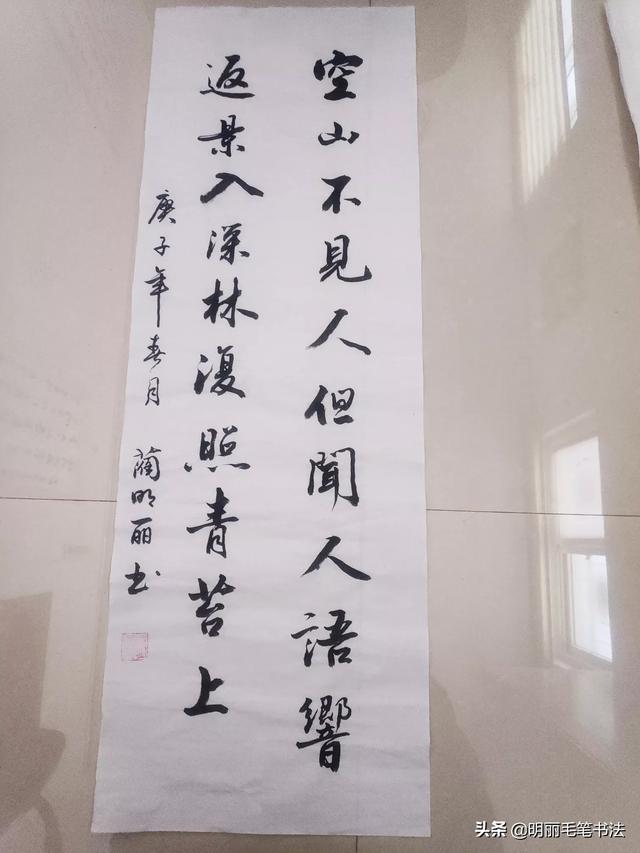 空山不見人但聞人語響
返景入深林復照青苔上
庚子年春月 蔺明丽书
头条 @明丽毛笔书法